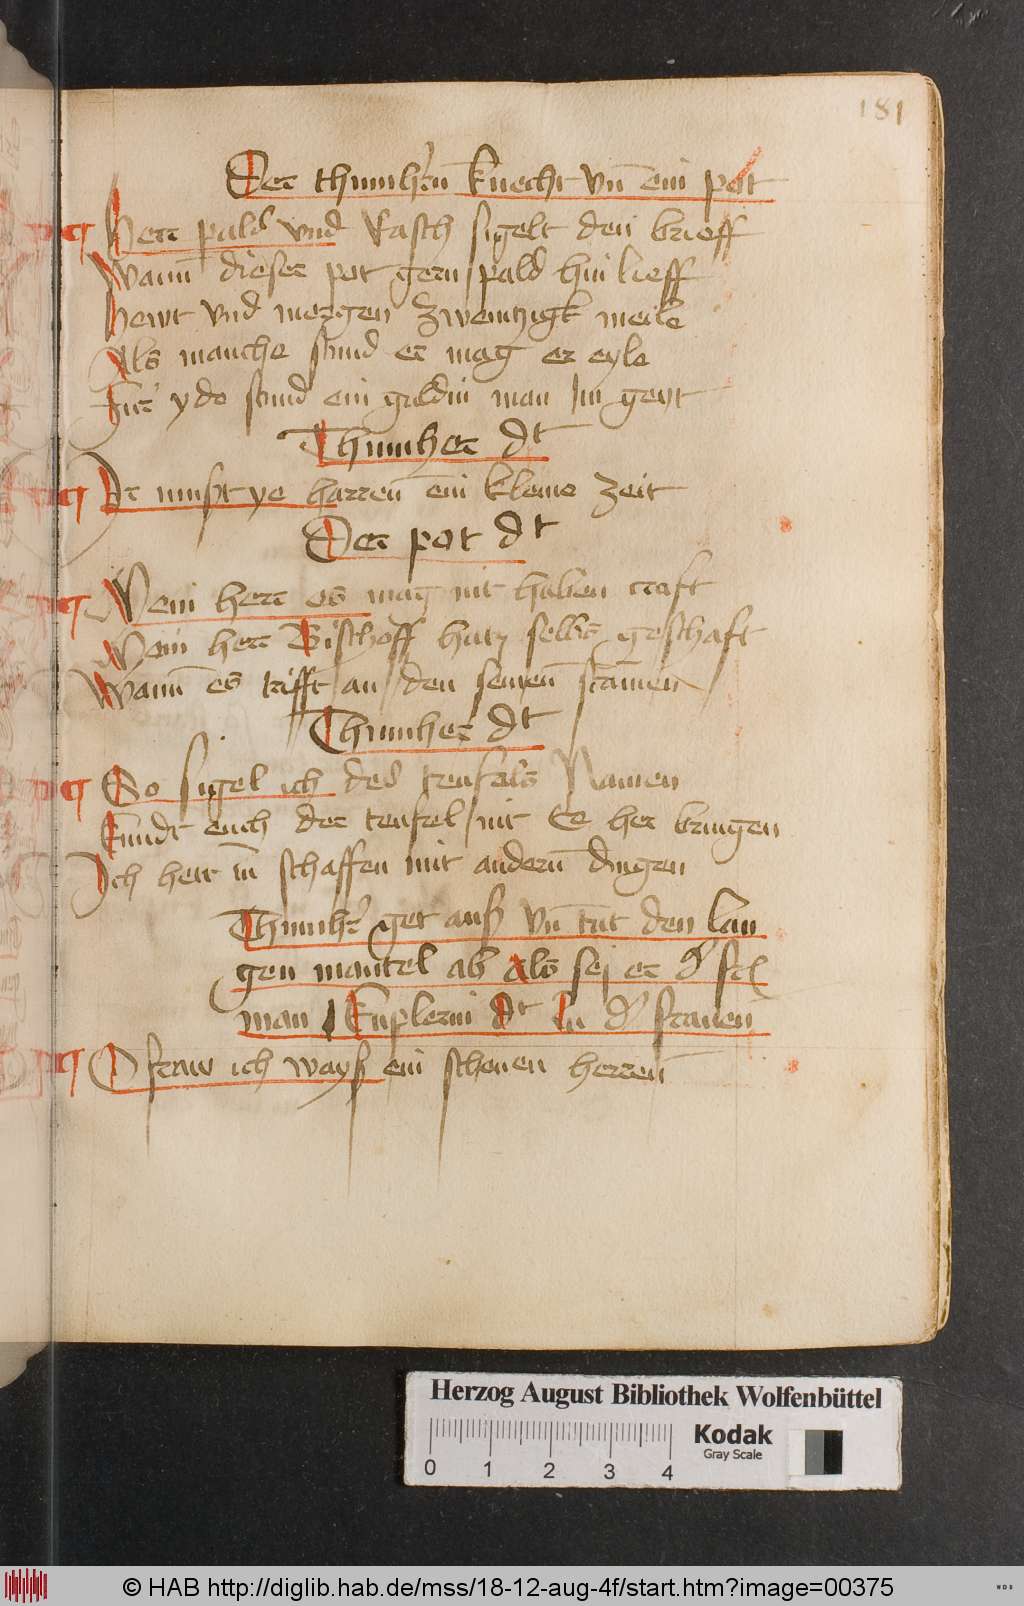 181
Der thumhern knecht vnd ein pot
Herr pald vnd Rasch sigelt den brieff
Wann dieser pot gern pald hin lieff
Hewt vnd morgen zwentzigk meile
Als manche stund er mag er eyle
Fur yde stund ein guldin man Im geyt
Thumher dt
Er must ye harren ein kleine zeit
Der pot dt
Nein herr es mag nit haben craft
Mein herr Bischoff hatz selbs geschaft
Wann es trifft an den seinen stamen
Thumher dt
So sigel ich des teufels Namen
kundt euch der teufel nit Ee her bringen
Ich hett zu schaffen mit andern dingen
Thumhr get auß vn tut den lan
gen mantel ab als sej er d
man kuplerin dt zu d frauen
O fraw ich wayß ein schonen herren
Herzog August Bibliothek Wolfenbüttel
0 1 2 3 4
Kodak
Gray Scale
© HAB http://diglib.hab.de/mss/18-12-aug-4f/start.htm?image=00375